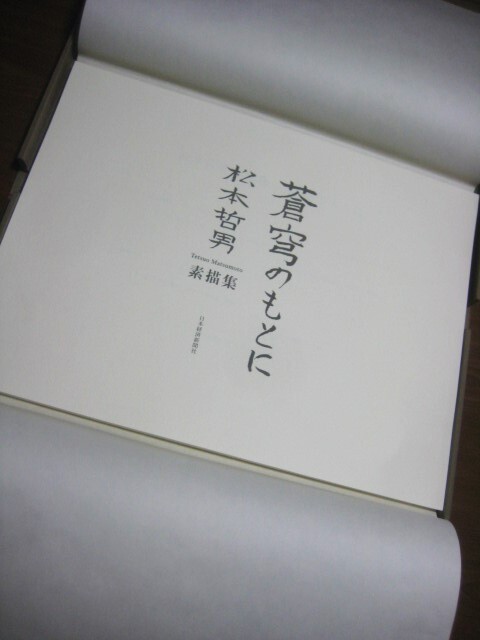 蒼穹のもとに
松本哲男
Tetsuo Matsumoto
素描集
日本経済新聞社